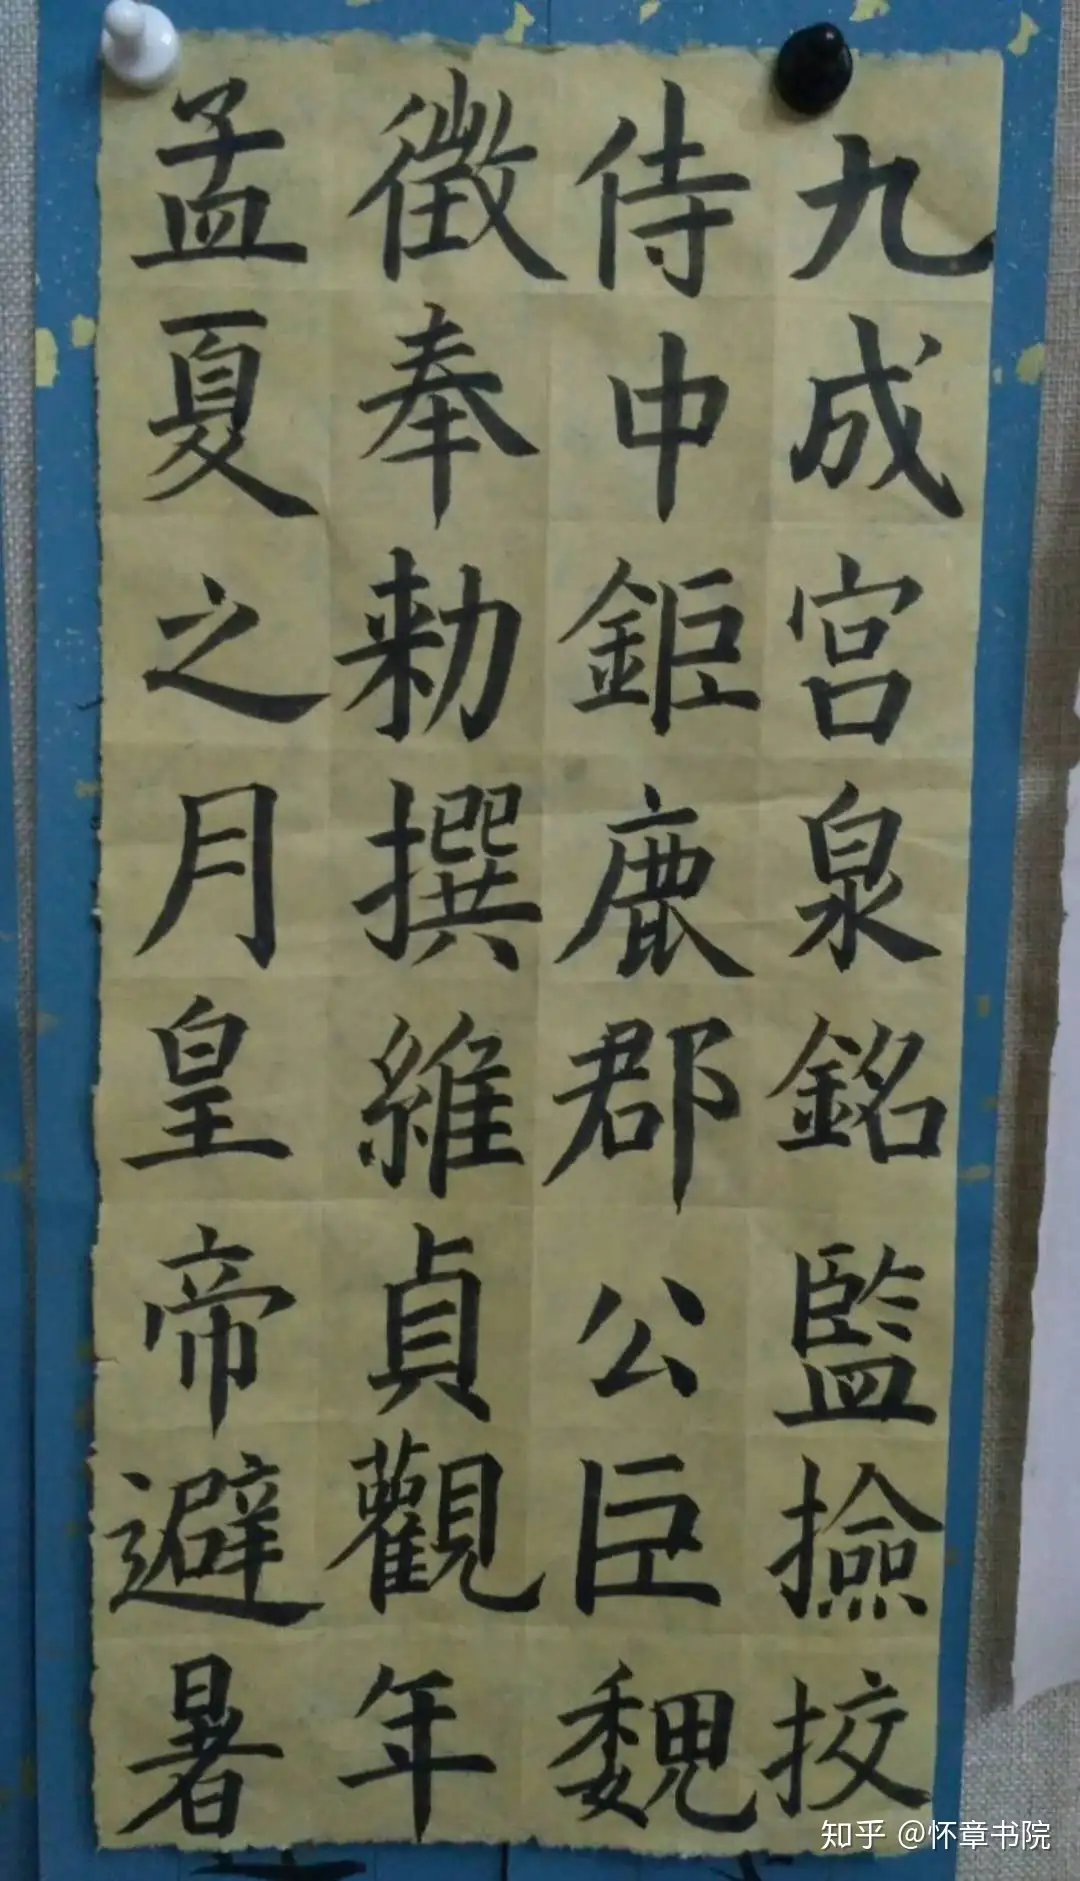 九成宫泉銘監撿挍
侍中鉅鹿郡公臣魏
徵奉勑撰維貞觀年
孟夏之月皇帝避暑
知乎 @怀章书院